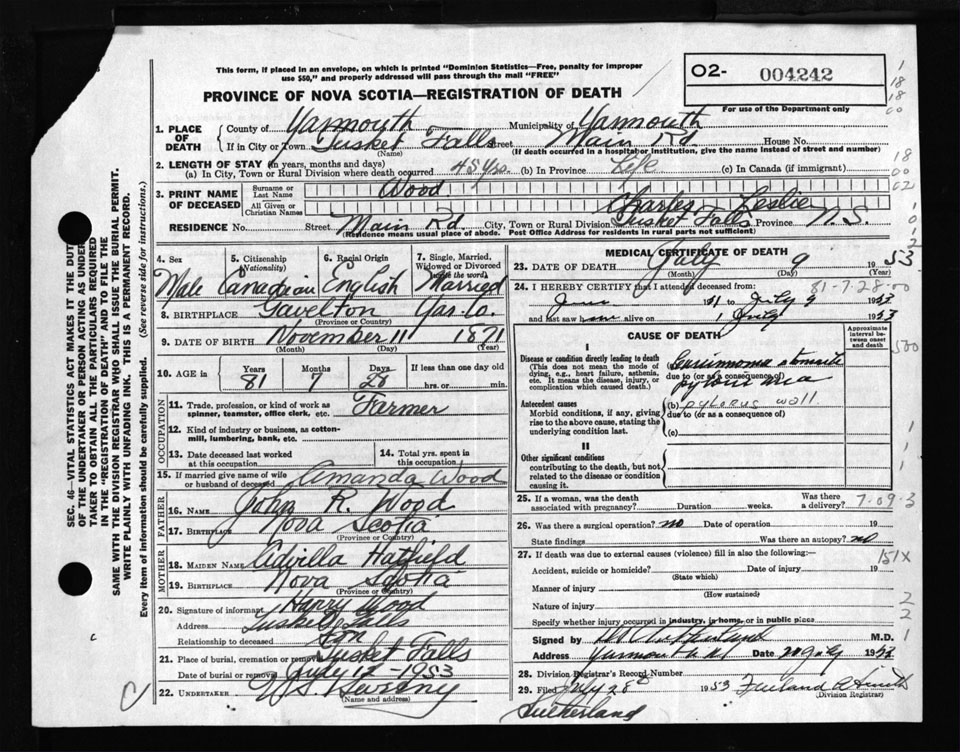 This form, if placed in an envelope, on which is printed "Dominion Statistics—Free, penalty for improper
use $50," and properly addressed will pass through the mail "FREE"
PROVINCE OF NOVA SCOTIA—REGISTRATION OF DEATH
O2- 004242
For use of the Department only
1. PLACE OF DEATH
County of Yarmouth Municipality of Yarmouth
If in City or Town Tusket Falls Street Main Rd. House No.
(Name) (If death occurred in a hospital or institution, give the name instead of street and number)
2. LENGTH OF STAY (in years, months and days)
(a) In City, Town or Rural Division where death occurred 45 yrs. (b) In Province Life (c) In Canada (if immigrant)
3. PRINT NAME OF DECEASED
Surname or Last Name Wood
All Given or Christian Names Charles Leslie
RESIDENCE No. Street Main Rd City, Town or Rural Division Tusket Falls Province N.S.
(Residence means usual place of abode. Post Office Address for residents in rural parts not sufficient)
4. Sex Male
5. Citizenship (Nationality) Canadian
6. Racial Origin English
7. Single, Married, Widowed or Divorced (write the word) Married
8. BIRTHPLACE Gavelton Yar. Co.
(Province or Country)
9. DATE OF BIRTH November 11 1871
(Month) (Day) (Year)
10. AGE in Years 81 Months 7 Days 28 If less than one day old hrs. or min.
OCCUPATION
11. Trade, profession, or kind of work as spinner, teamster, office clerk, etc. Farmer
12. Kind of industry or business, as cotton-mill, lumbering, bank, etc.
13. Date deceased last worked at this occupation
14. Total yrs. spent in this occupation
15. If married give name of wife or husband of deceased Amanda Wood
FATHER
16. NAME John R. Wood
17. BIRTHPLACE Nova Scotia
(Province or Country)
MOTHER
18. MAIDEN NAME Advilla Hatfield
19. BIRTHPLACE Nova Scotia
(Province or Country)
20. Signature of informant Harry Wood
Address Tusket Falls
Relationship to deceased Son
21. Place of burial, cremation or removal Tusket Falls
Date of burial or removal July 12 - 1953
22. UNDERTAKER
(Name and address)
MEDICAL CERTIFICATE OF DEATH
23. DATE OF DEATH July 9 1953
(Month) (Day) (Year)
81-7-28-00
24. I HEREBY CERTIFY that I attended deceased from:
June to July 9 1953
and last saw him alive on July 1953
CAUSE OF DEATH
Approximate interval between onset and death
I
Disease or condition directly leading to death
(This does not mean the mode of dying, e.g., heart failure, asthenia, etc. It means the disease, injury, or complication which caused death.)
due to (or as a consequence of)
Antecedent causes
Morbid conditions, if any, giving rise to the above cause, stating the underlying condition last.
(b) pylorus wall
due to (or as a consequence of)
(c)
II
Other significant conditions
contributing to the death, but not related to the disease or condition causing it.
25. If a woman, was the death associated with pregnancy? Duration weeks. Was there a delivery?
7-09-3
26. Was there a surgical operation? no Date of operation 19
State findings Was there an autopsy? no
27. If death was due to external causes (violence) fill in also the following:—
151X
Accident, suicide or homicide? Date of injury 19
(State which)
Manner of injury
(How sustained)
Nature of injury
Specify whether injury occurred in industry, in home, or in public place
Signed by M.D.
Address Yarmouth Date 1953
28. Division Registrar's Record Number
29. Filed July 28 1953
(Division Registrar)
Sutherland
SEC. 46—VITAL STATISTICS ACT MAKES IT THE DUTY
OF THE UNDERTAKER OR PERSON ACTING AS UNDER-
TAKER TO OBTAIN ALL THE PARTICULARS REQUIRED
IN THE "REGISTRATION OF DEATH" AND TO FILE THE
SAME WITH THE DIVISION REGISTRAR WHO SHALL ISSUE THE BURIAL PERMIT.
WRITE PLAINLY WITH UNFADING INK. THIS IS A PERMANENT RECORD.
Every item of information should be carefully supplied. (See reverse side for instructions.)